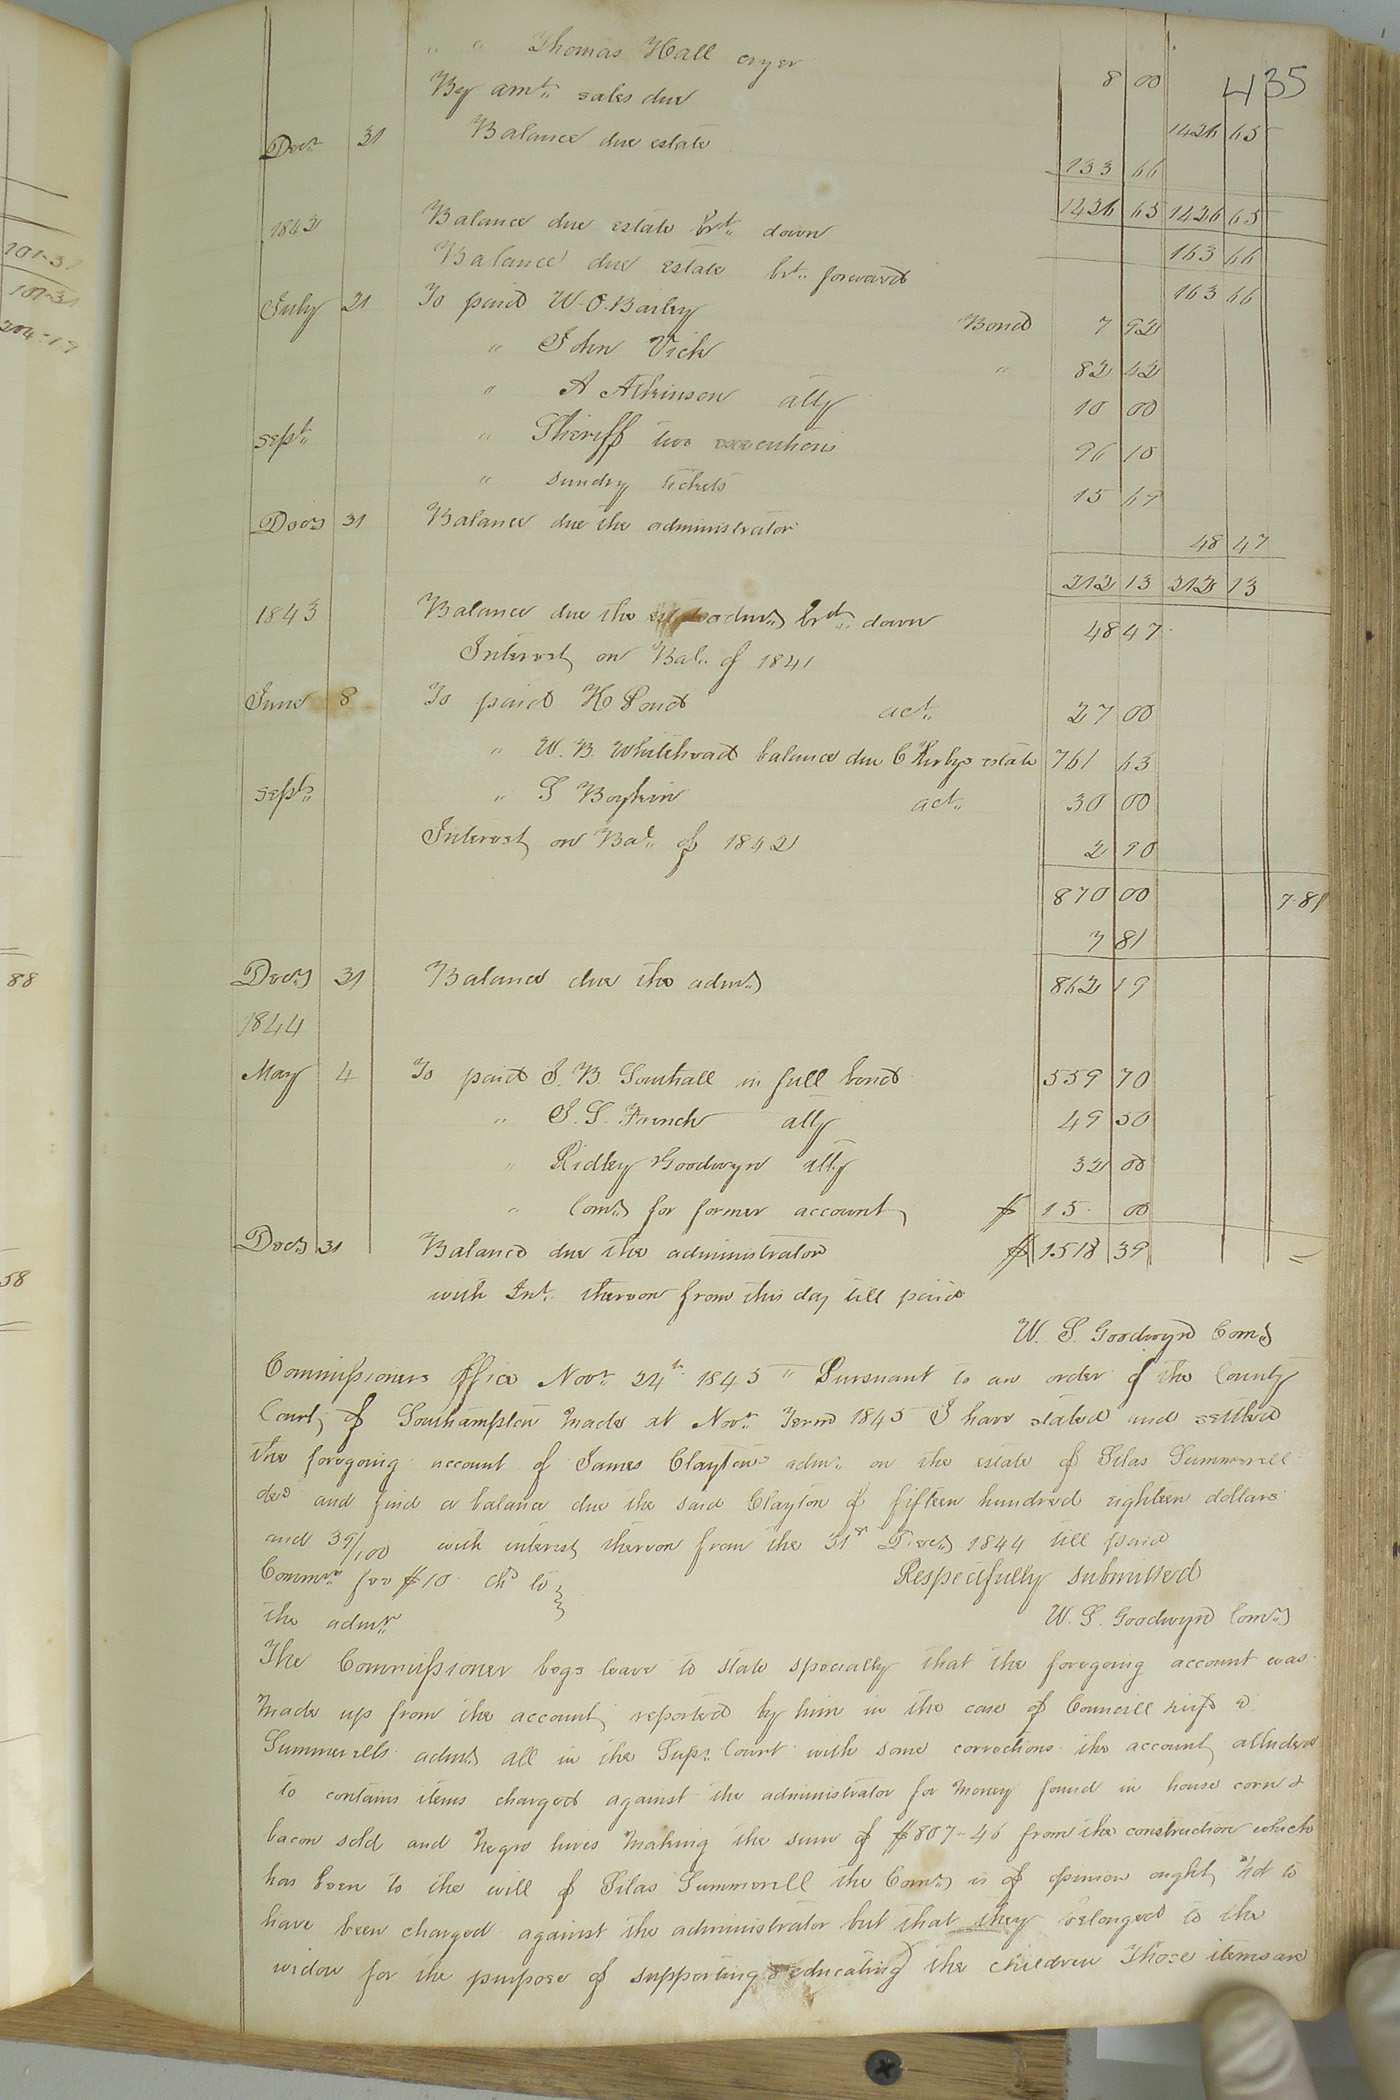 435
" " Thomas Hall cryer 8 00
By amt. sales due 1426 65
Decr 31 Balance due estate 133 66
1426 65 1426 65
1842 Balance due estate brt. down 163 66
Balance due estate brt. forward 163 66
July 21 To paid W. O. Bailey Bond 7 92
" John Vick " 82 42
" A Atkinson atty 10 00
Sept. " Sheriff two executions 96 10
" sundry tickets 15 69
Decr 31 Balance due the administrator 48 47
212 13 212 13
1843 Balance due the admr. brt. down 48 47
Interest on Bal. of 1841
June 8 To paid H Pond act. 27 00
" W. B. Whitehead balance due C Kirbys estate 761 63
Sept. " S Boykin act. 30 00
Interest on Bal. of 1842 2 90
870 00 7.81
7 81
Decr 31 Balance due the admr. 862 19
1844
May 4 To paid J. B. Southall in full bond 559 70
" J. S. French atty 49 50
" Ridley Goodwyn atty 32 00
" Comr. for former account $ 15 00
Decr 31 Balance due the administrator $ 1518 39
with Int. thereon from this day till paid
W. S. Goodwyn Comr
Commissioners Office Novr. 24th 1845 " Pursuant to an order of the County
Court of Southampton made at Novr. Term 1845 I have stated and settled
the foregoing account of James Clayton admr. on the estate of Silas Summerell
decd and find a balance due the said Clayton of fifteen hundred eighteen dollars
and 39/100 with interest thereon from the 31st Decr 1844 till paid
Commr. fee $10 chd to Respectfully submitted
the admr. W. S. Goodwyn Comr.
The Commissioner begs leave to state specially that the foregoing account was
made up from the account reported by him in the case of Councill wife v
Summerells admr. all in the Supr. Court with some corrections the account alluded
to contains items charged against the administrator for money found in house corn &
bacon sold and negro hires making the sum of $807.46 from the construction which
has been to the will of Silas Summerell the Comr. is of opinion ought not to
have been charged against the administrator but that they belonged to the
widow for the purpose of supporting & educating the children Those items are
101-3
107-3
204-17
88
58